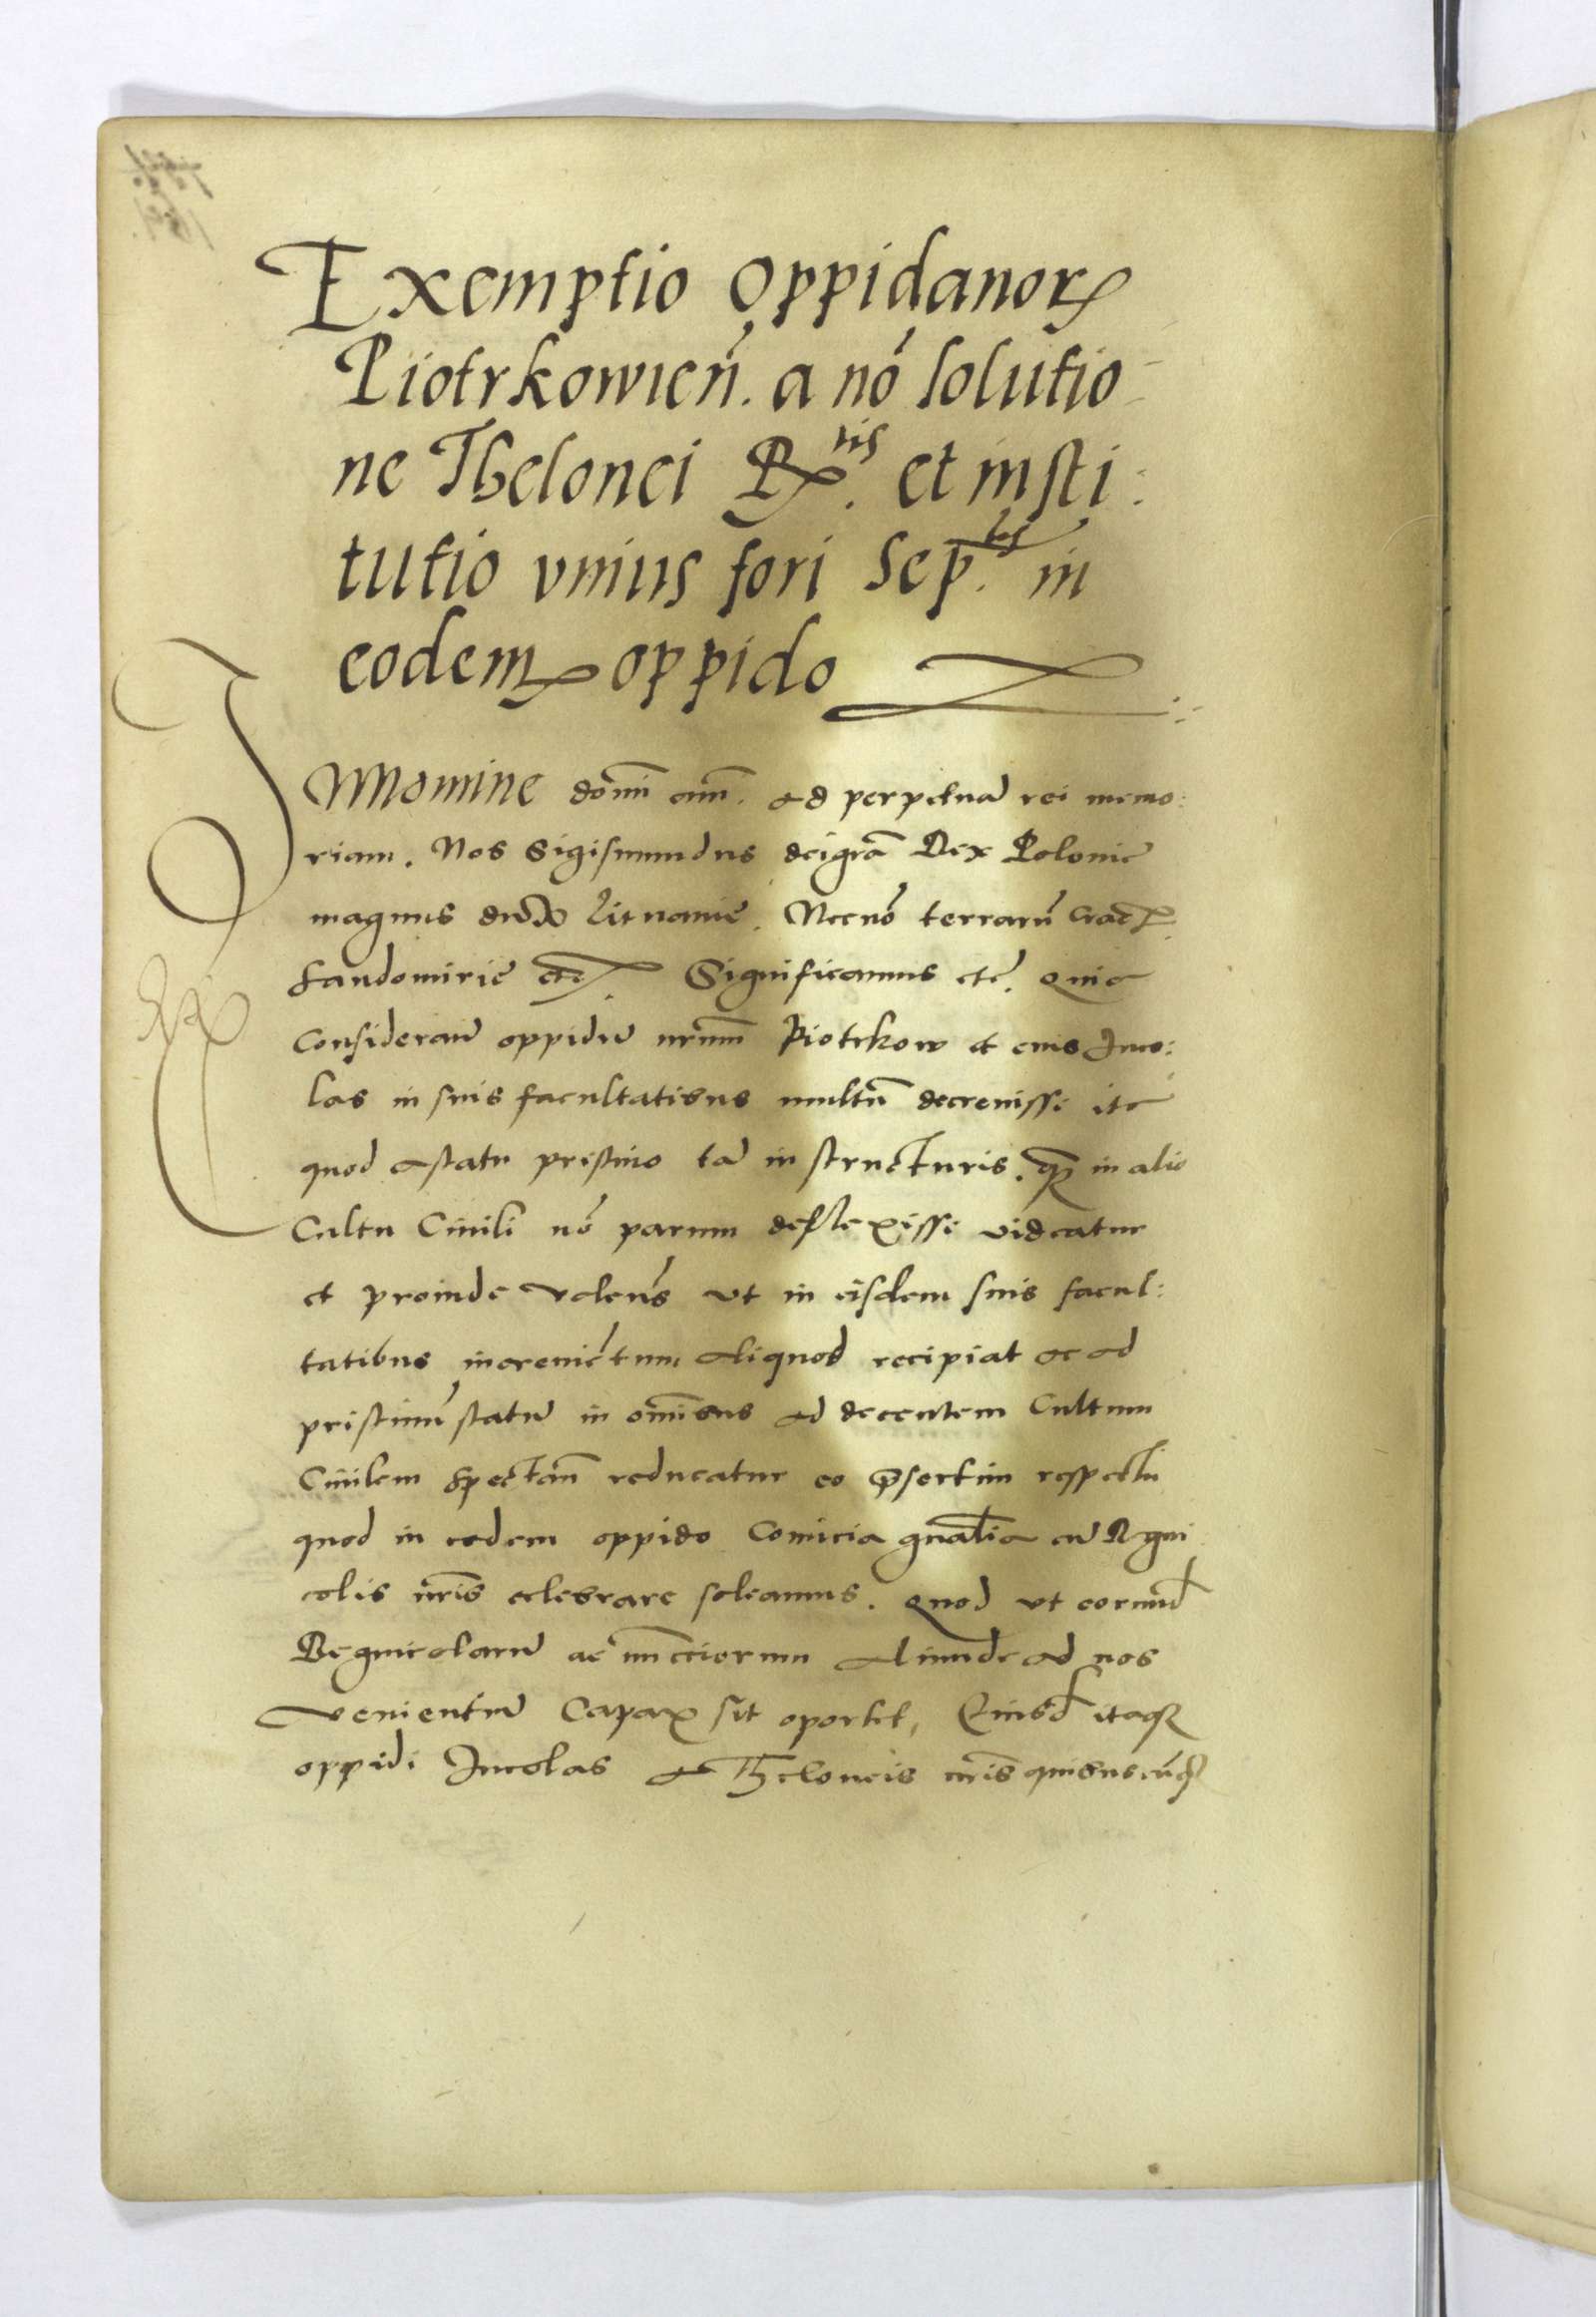 Exemptio Oppidanorꝝ
Piotrkowien̄. a nō solutio-
ne Thelonei Rx.tis et insti:
tutio vnius fori Sep.lis in
eodem oppido
IN Nomine domī am̄. Ad perpetuā rei memo:
riam. Nos Sigismundus dei grā Rex Polonie
magnus dux Lituanie. Necnō terrarū Crac.
Sandomirie etc. Significamus etc̄. Quia
Considerantes oppidū nr̄um Piotrkow et eius Inco:
las in suis facultatibus multū decreuisse ita
quod a statu pristino tā in structuris. q̄ꝫ in alio
Cultu Ciuili nō parum deflexisse videatur
et proinde volen̄s vt in eisdem suis facul:
tatibus incremē̄tum aliquod recipiat ac ad
pristinū statū in om̄ibus ad decentem Cultum
Ciuilem spectan̄ reducatur eo p̄sertim respectu
quod in eodem oppido Comicia gn̄alia cū Regni
colis nr̄is celebrare soleamus. Quod vt eorund
Regnicolarū ac nūcciorum aliunde ad nos
venientiū Capax sit oportet, Eiusd itaqꝫ
oppidi Incolas a Theloneis nr̄is quibuscūqꝫ